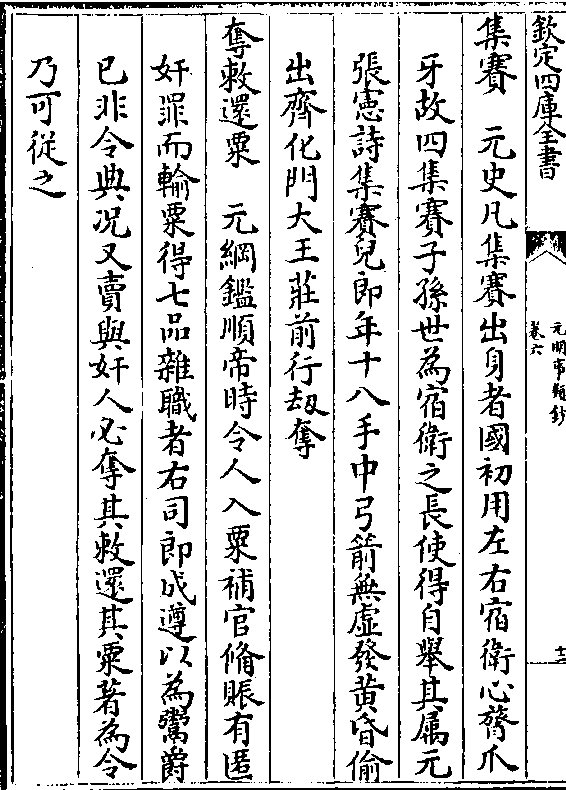 欽定四庫全書
元明事類鈔
卷六
十二
集賽　元史凡集賽出身者國初用左右宿衛心膂爪
牙故四集賽子孫世為宿衛之長使得自舉其属元
張憲詩集賽兒郎年十八手中弓箭無虛發黃昏偷
出齊化門大王莊前行刼奪
奪敕還粟　元綱鑑順帝時令人入粟補官備賑有匿
奸罪而輸粟得七品雜職者右司郎成遵以為鬻爵
已非令典况又賣與奸人必奪其敕還其粟著為令
乃可從之